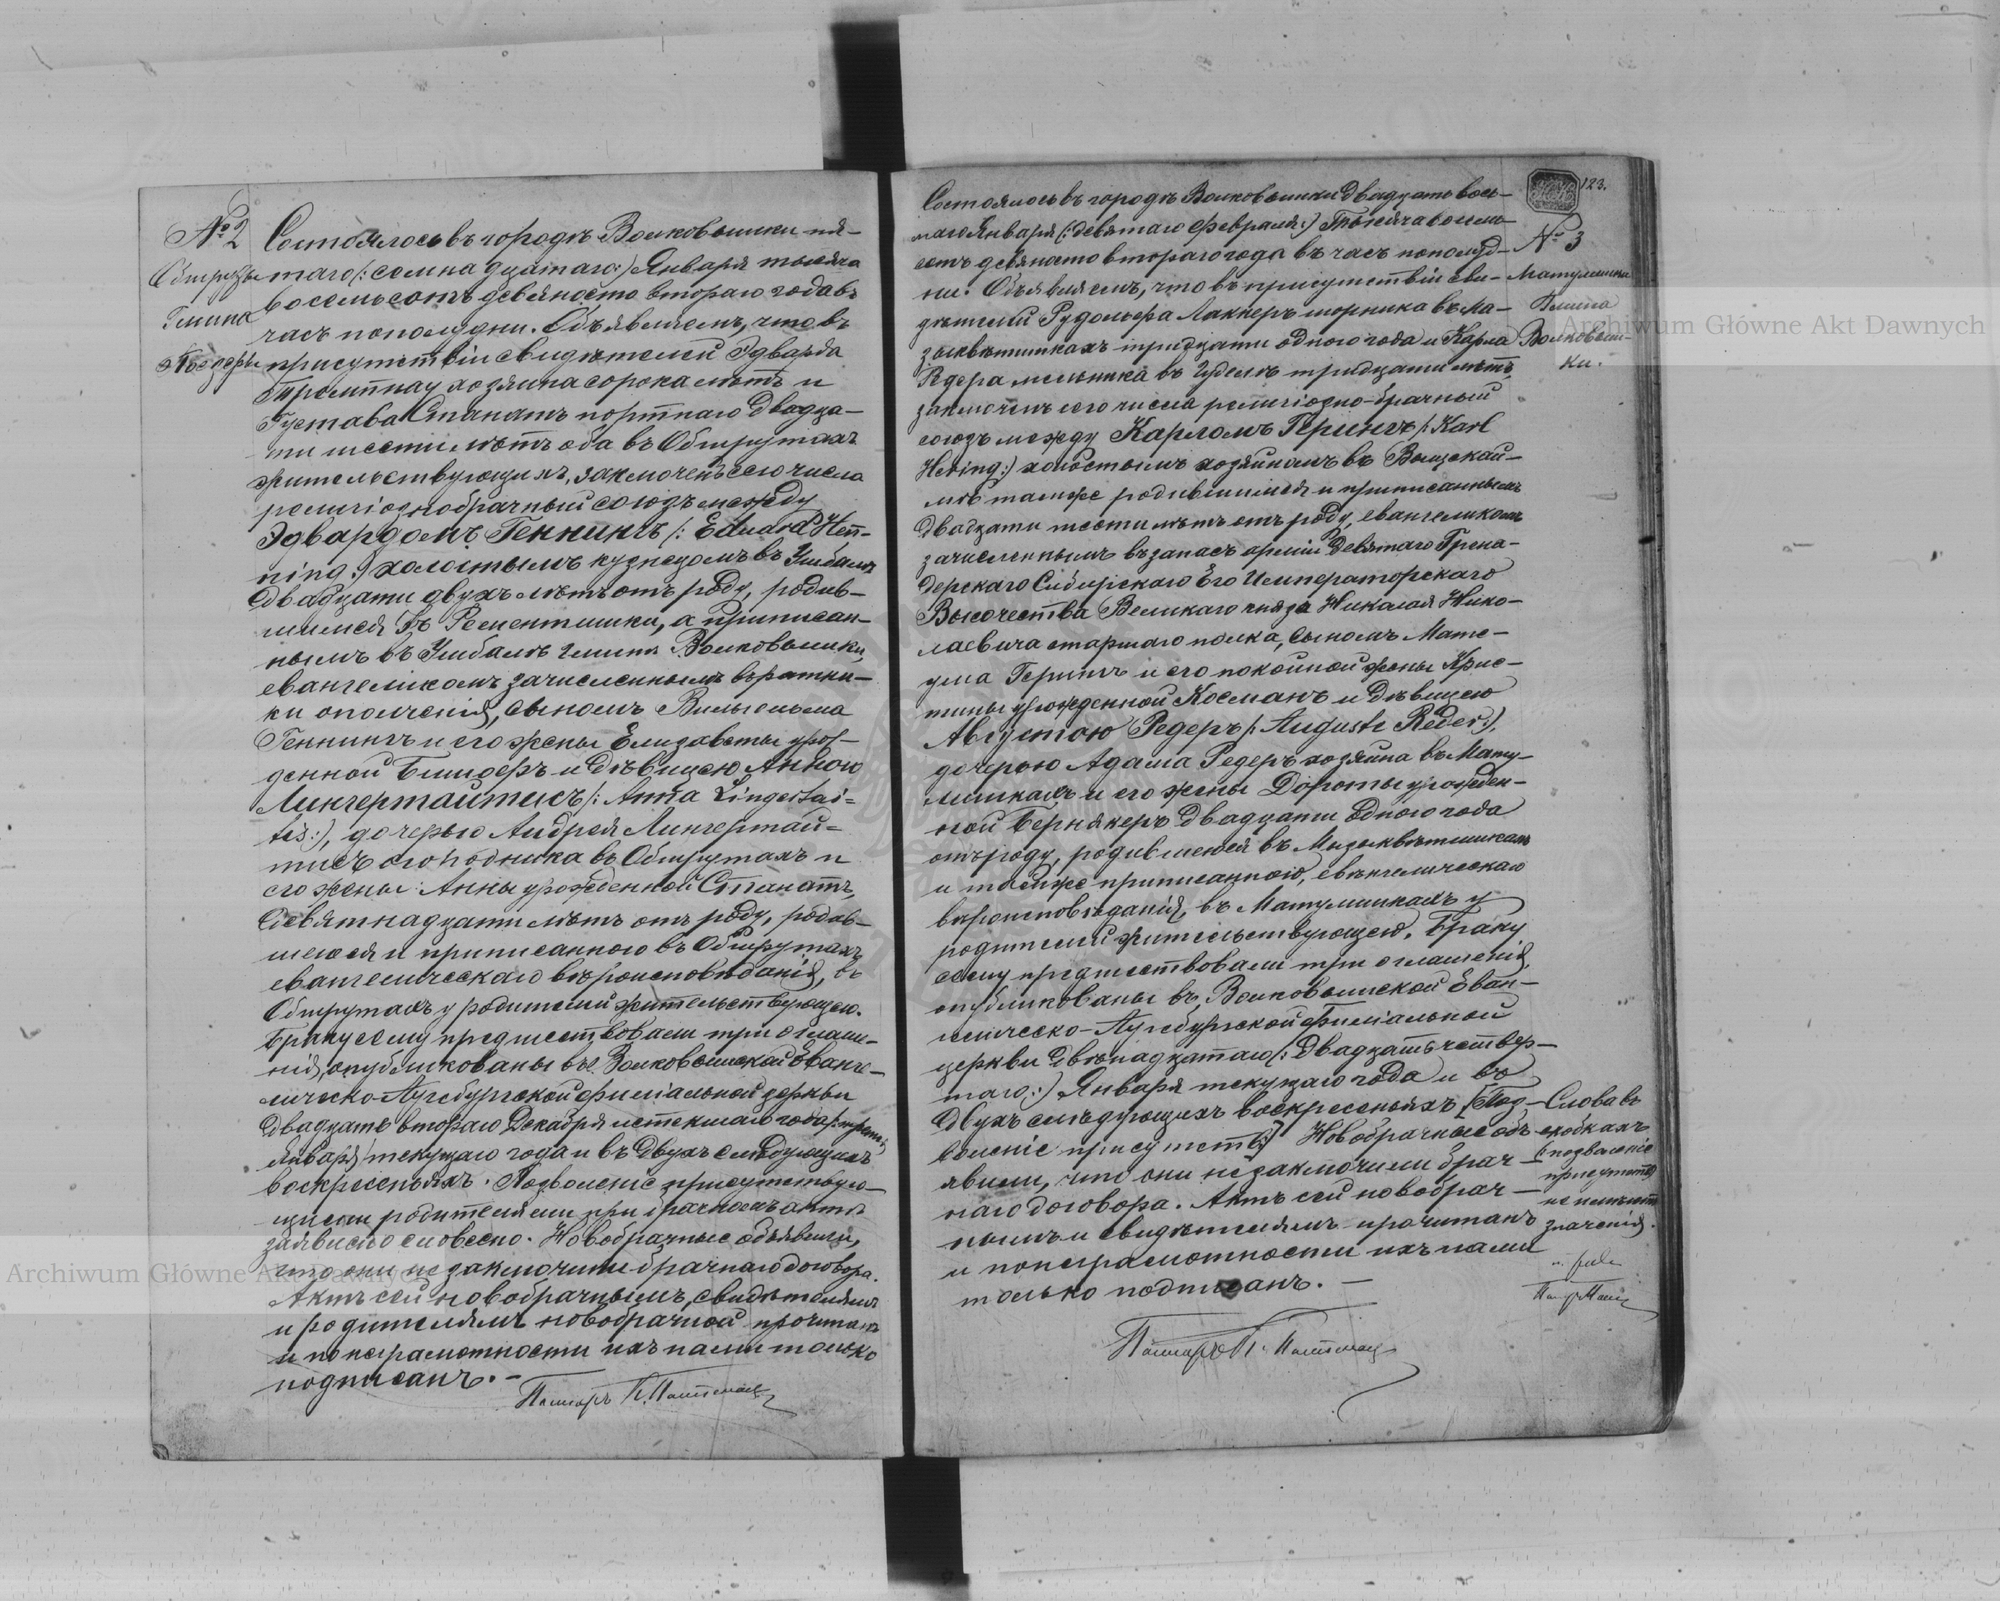 № 2
Обшруты
Гмина
Состоялось въ городѣ Волковышки пя-
таго (: семнадцатаго :) Января тысяча
восемьсотъ девяносто втораго года въ
часъ пополудни. Объявляемъ, что въ
присутствіи свидѣтелей Эдварда
хозяина сорока лѣтъ и
Густава Станатъ портнаго двадца-
ти шести лѣтъ оба въ Обшрутахъ
жительствующихъ, заключенъ сего числа
религіознобрачный союзъ между
Эдвардомъ Геннингъ (: Eduard Hen-
ning :) холостымъ кузнецомъ въ
двадцати двухъ лѣтъ отъ роду, родив-
шимся въ а приписан-
нымъ въ гмины Волковышки,
евангеликомъ зачисленнымъ въ ратни-
ки ополченія, сыномъ Вильгельма
Геннингъ и его жены Елизаветы урож-
денной и дѣвицею Анною
Лингертайтисъ (: Anna Lingertai-
tis :), дочерью Андрея Лингертай-
тисъ огородника въ Обшрутахъ и
его жены Анны урожденной Станатъ,
девятнадцати лѣтъ отъ роду, родив-
шеюся и приписанною въ Обшрутахъ
евангелическаго вѣроисповѣданія, въ
Обшрутахъ у родителей жительствующею.
Браку сему предшествовали три оглаше-
нія, опубликованы въ Волковышской Еванге-
лическо-Аугсбургской филіальной церкви
двадцать втораго Декабря истекшаго года (: третьяго
Января :) текущаго года и въ двухъ слѣдующихъ
воскресеньяхъ. Позволеніе присутствую-
щими родителями при брачномъ актѣ
заявлено словесно. Новобрачные объявили,
что они не заключили брачнаго договора.
Актъ сей новобрачнымъ, свидѣтелямъ
и родителямъ новобрачной прочитанъ
и по неграмотности ихъ нами только
подписанъ. —
Пасторъ
123.
№ 3
Матулишки
Гмина
Волковыш-
ки.
Состоялось въ городѣ Волковышки двадцать вось-
маго Января (: девятаго Февраля :) Тысяча восемь-
сотъ девяносто втораго года въ часъ пополуд-
ни. Объявляемъ, что въ присутствіи сви-
дѣтелей Рудольфа Лаккеръ шорника въ Ма-
зыквѣтишкахъ тридцати одного года и Карла
Редера мельника въ тридцати лѣтъ,
заключенъ сего числа религіозно-брачный
союзъ между Карломъ Герингъ (: Karl
Hering :) холостымъ хозяиномъ въ
тамже родившимся и приписаннымъ
двадцати шести лѣтъ отъ роду, евангеликомъ
зачисленнымъ въ запасъ арміи девятаго Грена-
дерскаго Сибирскаго Его Императорскаго
Высочества Великаго князя Николая Нико-
лаевича старшаго полка, сыномъ Мате-
уша Герингъ и его покойной жены Крис-
тины урожденной Косманъ и дѣвицею
Августою Редеръ (: Auguste Reder :),
дочерью Адама Редеръ хозяина въ Мату-
лишкахъ и его жены Дороты урожден-
ной Бернекеръ двадцати одного года
отъ роду, родившеюся въ Мазыквѣтишкахъ
и тамже приписанною, евангелическаго
вѣроисповѣданія, въ Матулишкахъ у
родителей жительствующею. Браку
сему предшествовали три оглашенія,
опубликованы въ Волковышской Еван-
гелическо-Аугсбургской филіальной
церкви двѣнадцатаго (: двадцать четвер-
таго :) Января текущаго года и въ
двухъ слѣдующихъ воскресеньяхъ. [Поз-
воленіе присутств:] Новобрачные объ-
явили, что они не заключили брач-
наго договора. Актъ сей новобрач-
нымъ и свидѣтелямъ прочитанъ
и по неграмотности ихъ нами
только подписанъ. —
Пасторъ
Слова въ
скобкахъ
(: позволеніе
присутств :)
не имѣютъ
значенія.